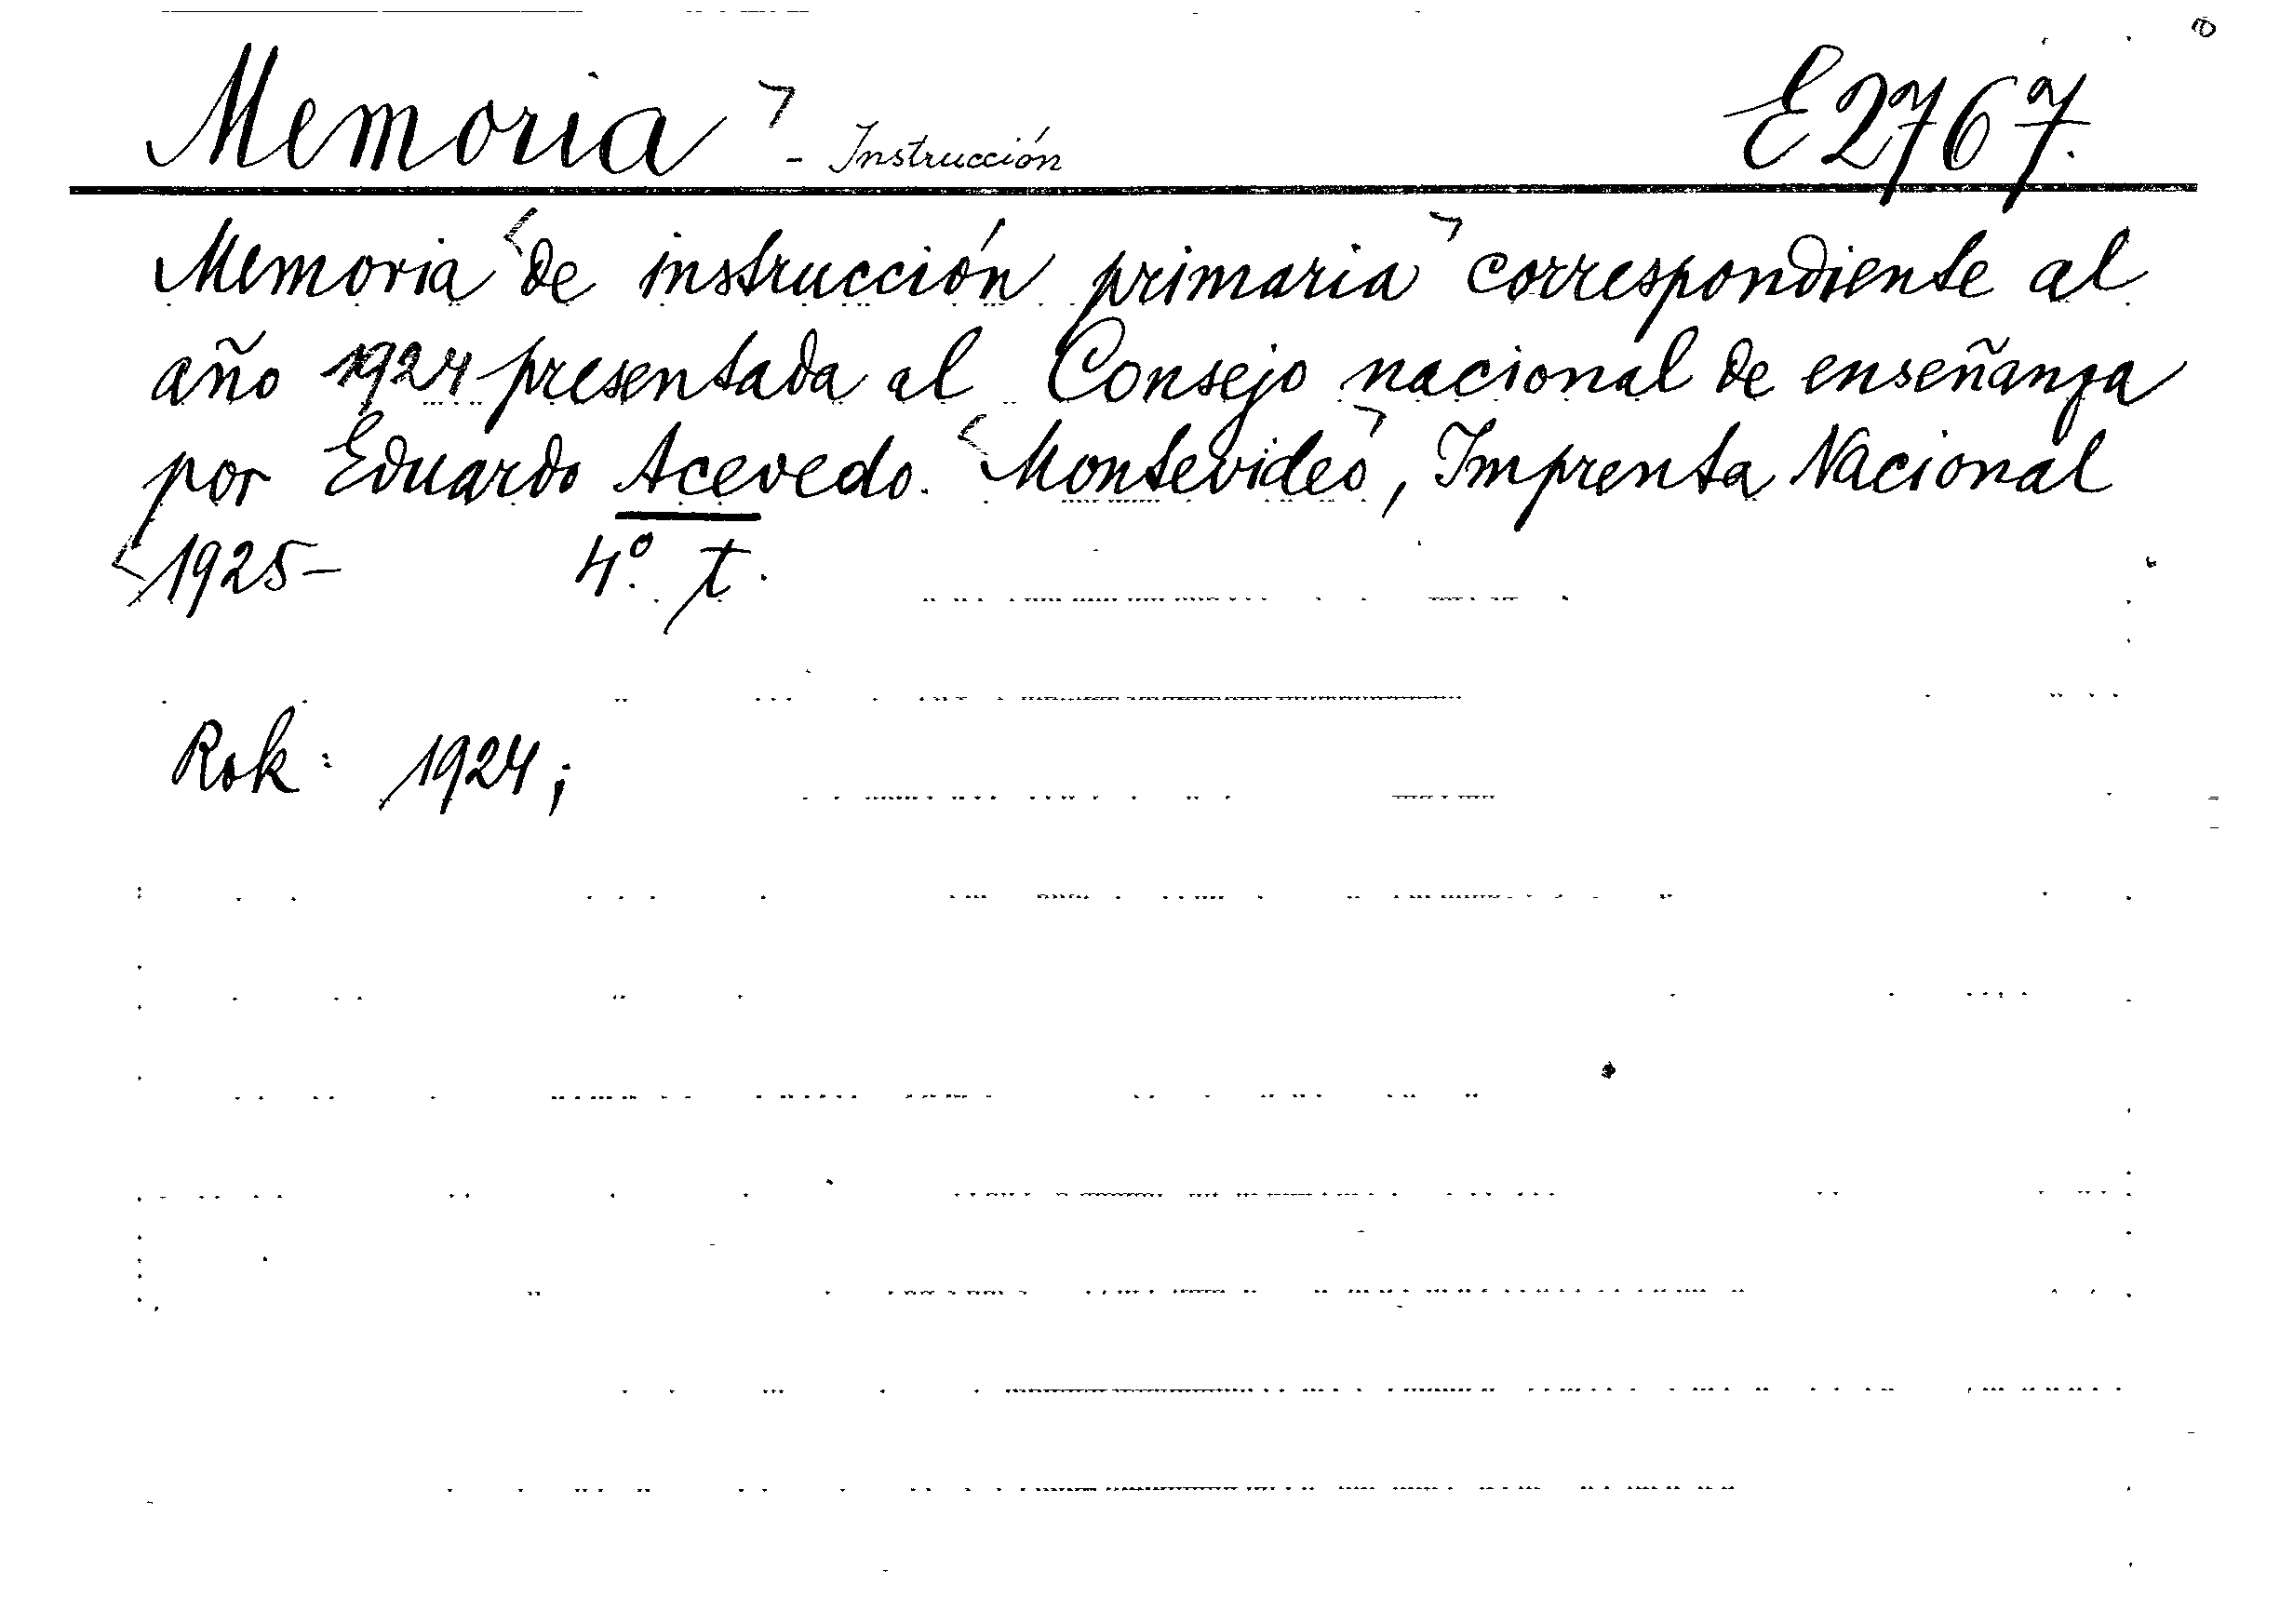 Memoria - Instrucción E2767.
Memoria de instrucción primaria correspondiente al
año 1924 presentada al Consejo nacional de enseñanza
por Eduardo Acevedo. Montevideo, Imprenta Nacional
1925- 4º. t.
Rok: 1924;